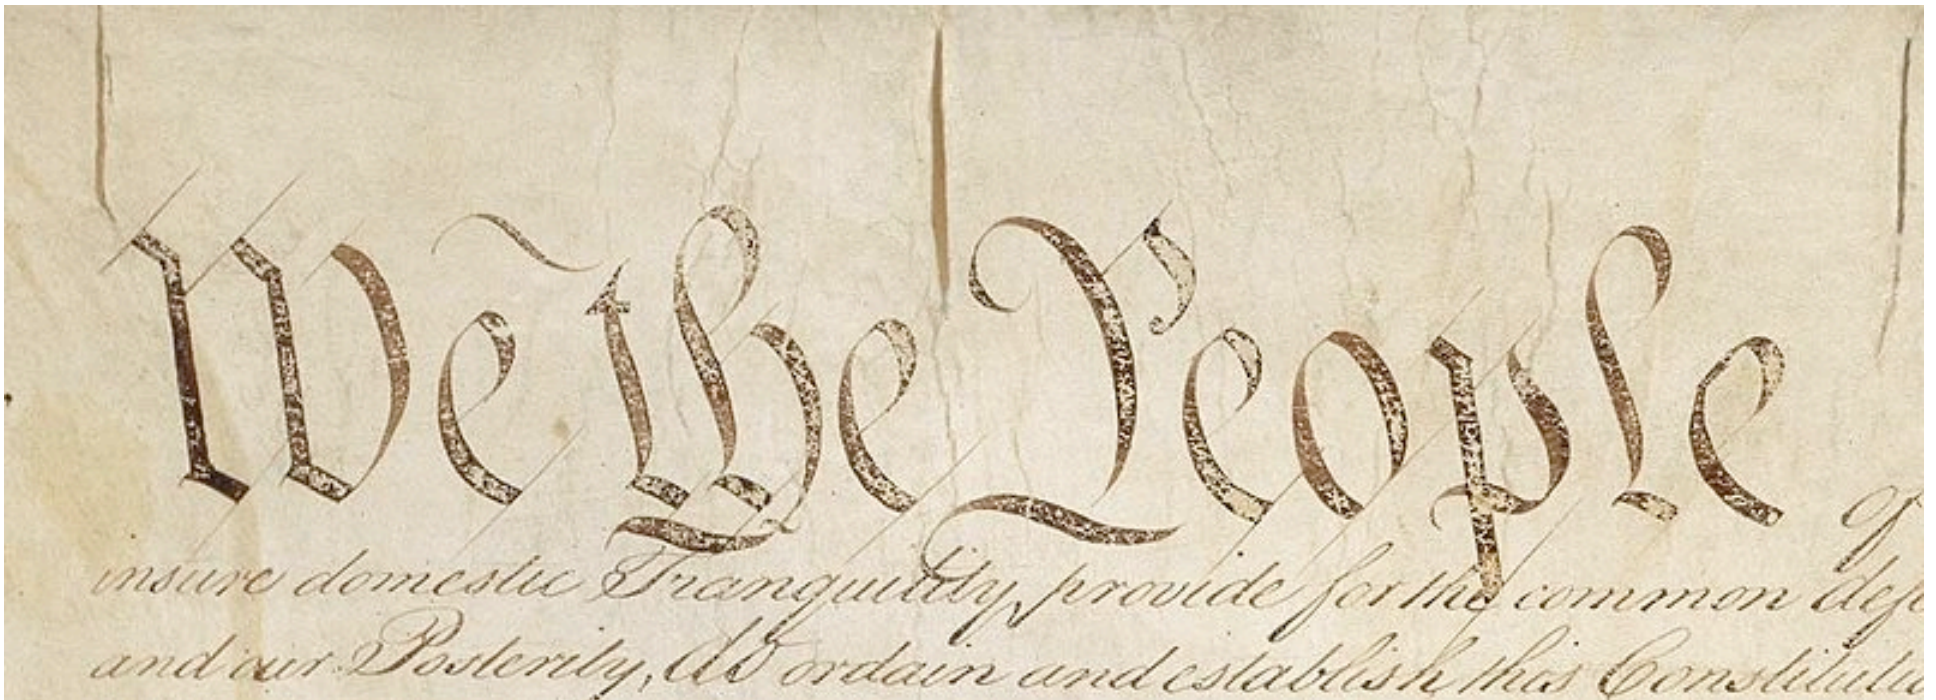 We the People of
insure domestic Tranquility, provide for the common defe
and our Posterity, do ordain and establish this Constitutio